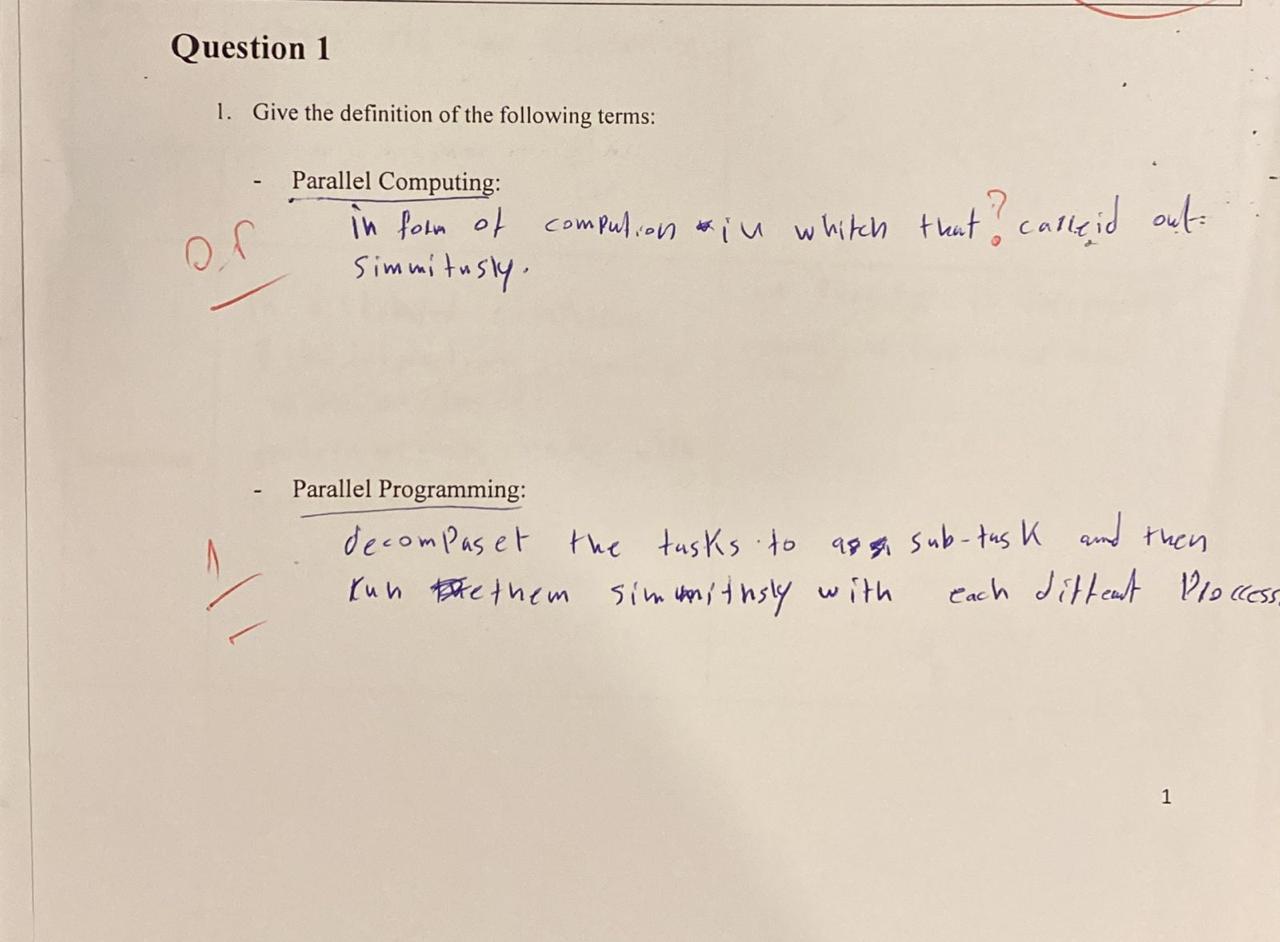 Question 1
1. Give the definition of the following terms:
- Parallel Computing:
in form of compution in whitch that ? carreid out
simmitusly.
- Parallel Programming:
decompaset the tasks to sub-task and then
run them simmithsly with each diffeent Proccess
1
1